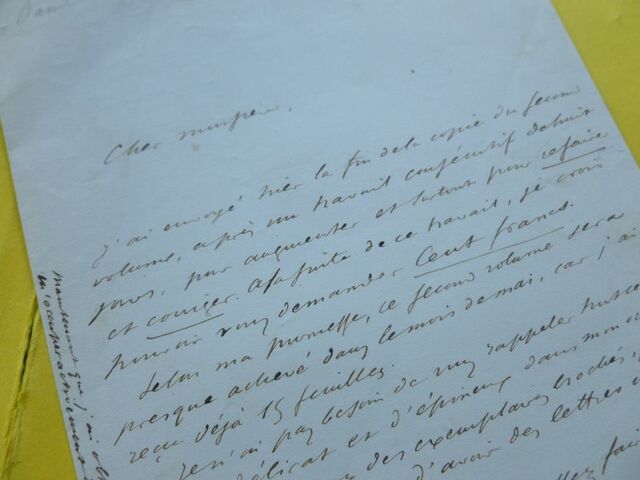 Cher monsieur,
J'ai envoyé hier la fin de la copie du second
volume, après un travail consécutif de huit
jours, pour augmenter et surtout pour refaire
et corriger. A la suite de ce travail, je crois
pouvoir vous demander Cent francs.
Selon ma promesse, ce second volume sera
presque achevé dans le mois de mai, car j'ai
reçu déjà 15 feuilles.
Je n'ai pas besoin de vous rappeler tout ce
délicat et d'épineux dans mon
des exemplaires
d'avoir des lettres
faire
maintenant que j'ai
m'occuper activement